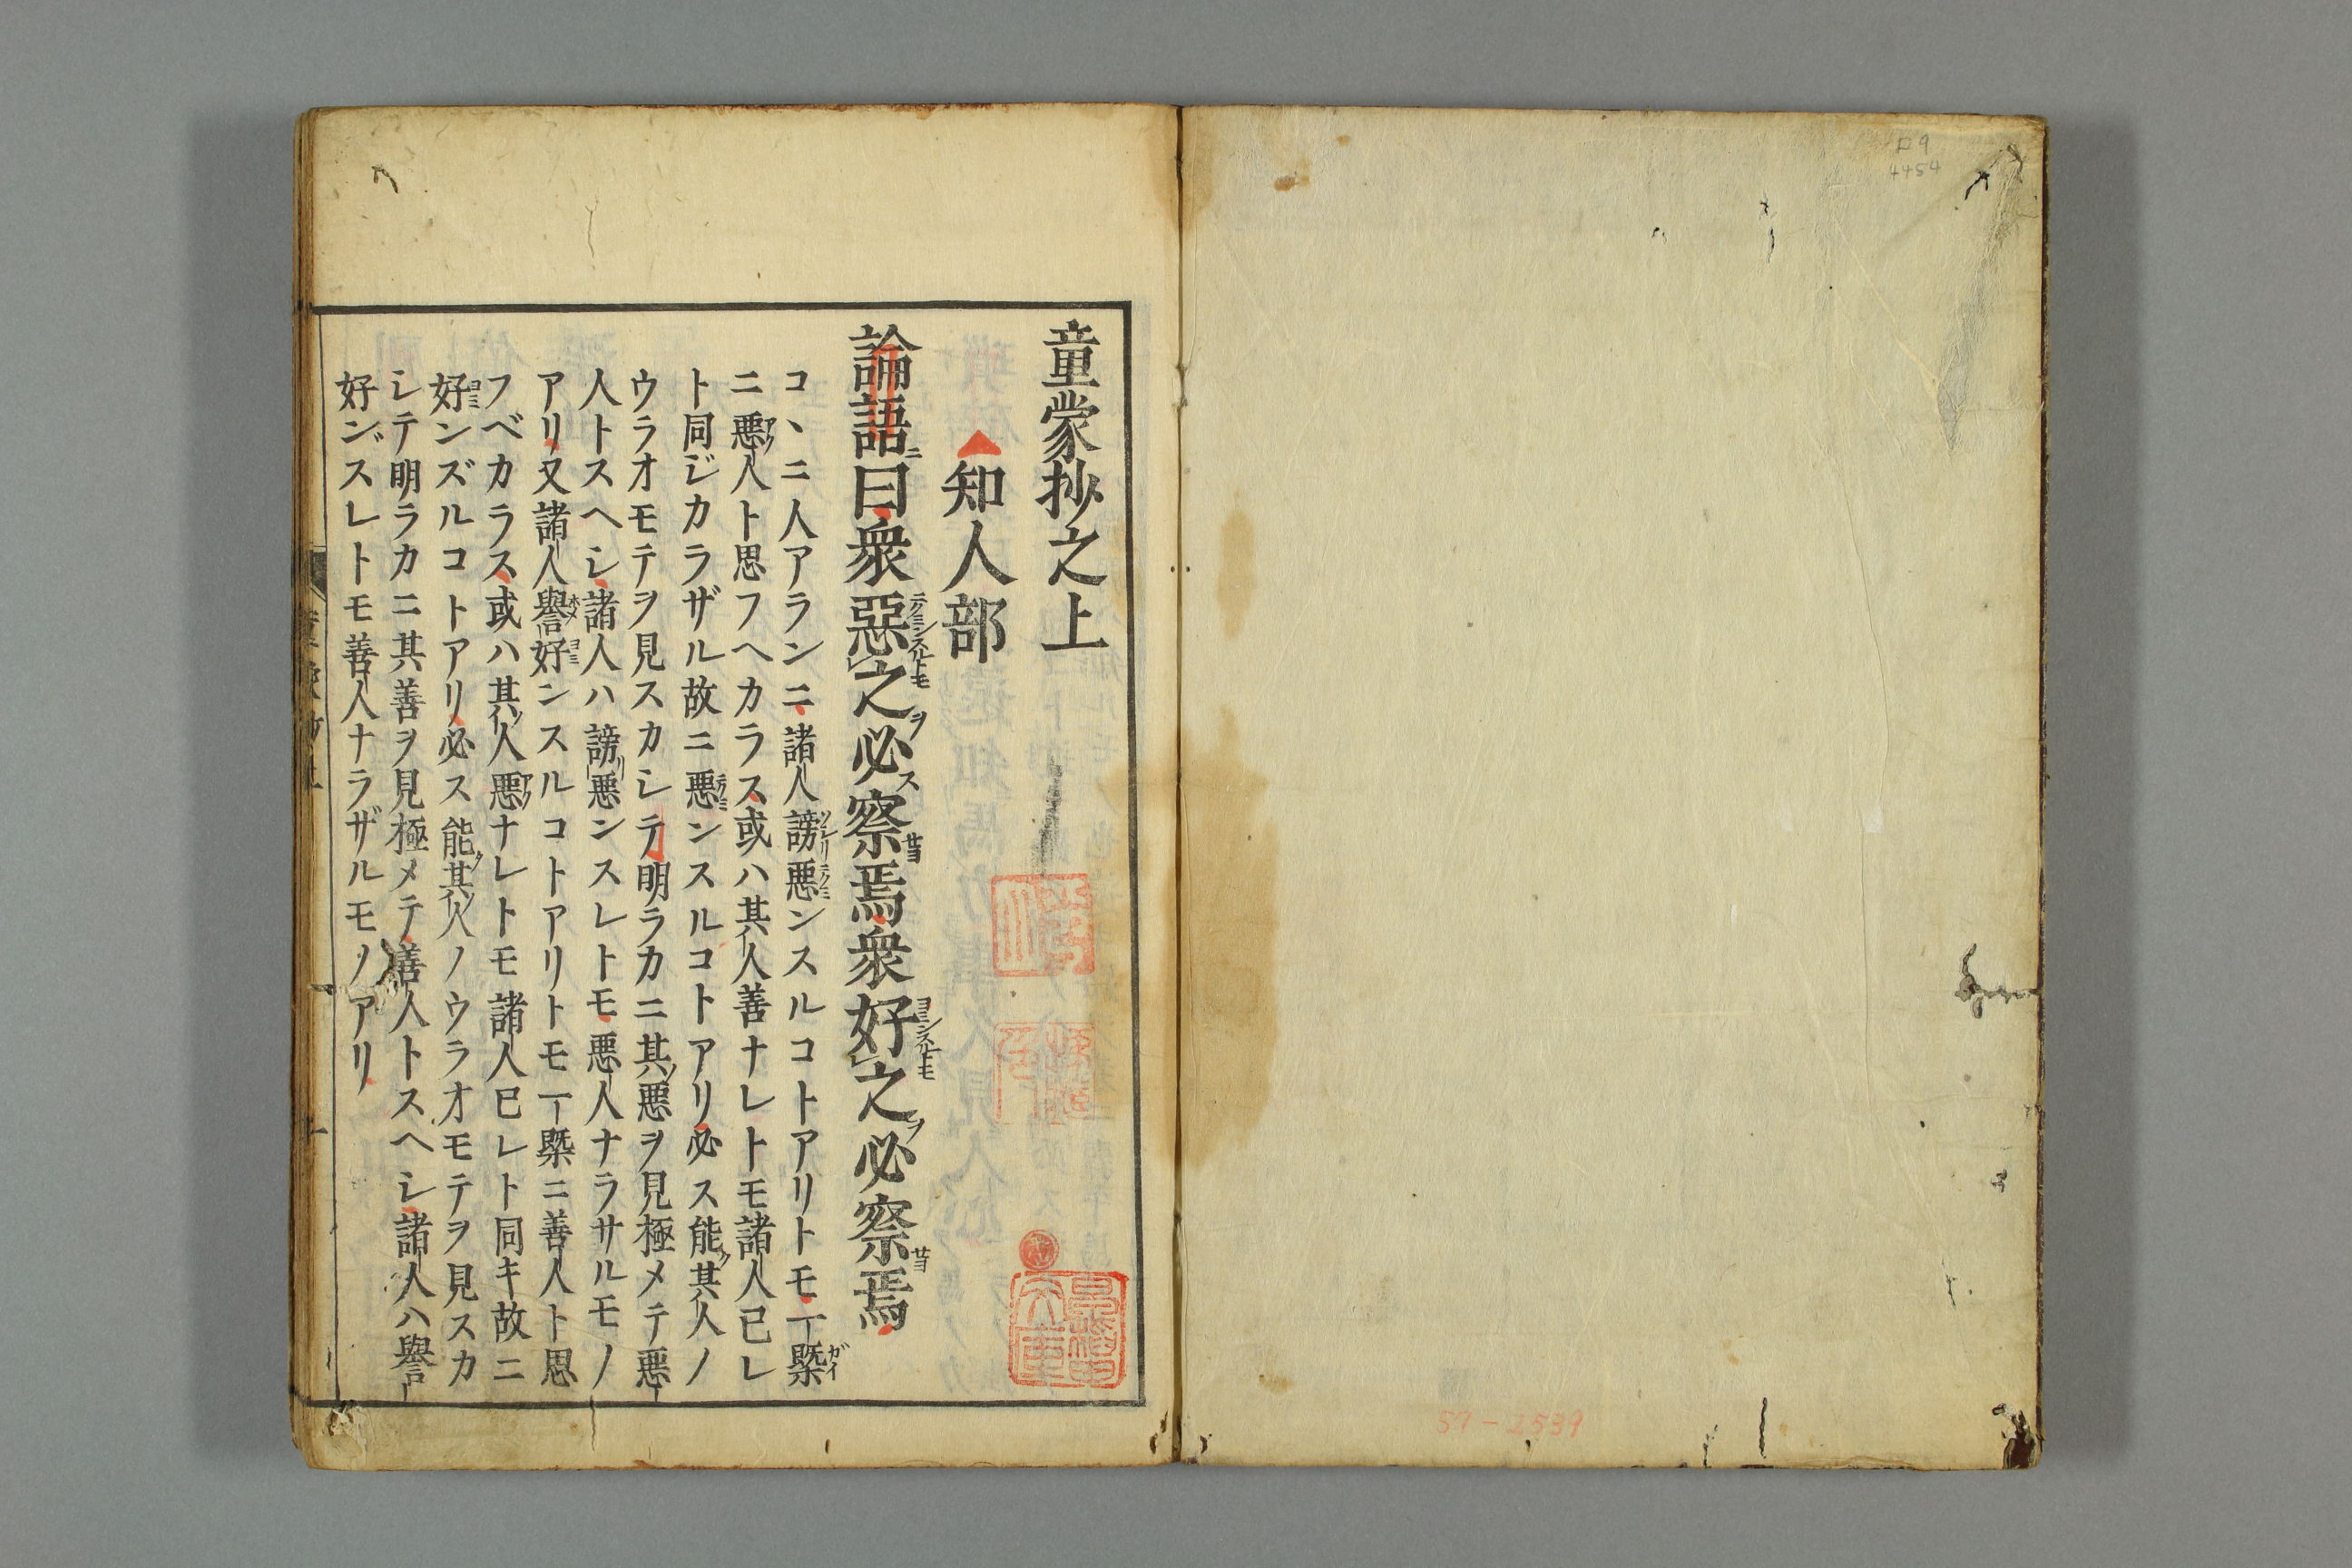 ロ9
4454
57-2539
童蒙抄之上
知人部
論語ニ曰衆惡ニクミンスルトモ之ヲ必ス察サヨ焉衆好ヨミンスルトモ之ヲ必察サヨ焉
コヽニ人アランニ諸人謗ソレリ悪ニクミンスルコトアリトモ一槩ガイ
ニ悪アク人ト思フヘカラス或ハ其ノ人善ナレトモ諸人己レ
ト同ジカラザル故ニ悪ニクミンスルコトアリ必ス能ク其ノ人ノ
ウラオモテヲ見スカシテ明ラカニ其ノ悪ヲ見極メテ悪
人トスヘシ諸人ハ謗リ悪ンスレトモ悪人ナラサルモノ
アリ又諸人譽ホメ好ヨミンスルコトアリトモ一槩ニ善人ト思
フベカラス或ハ其ノ人悪アクナレトモ諸人己レト同キ故ニ
好ヨミンズルコトアリ必ス能ク其ノ人ノウラオモテヲ見スカ
シテ明ラカニ其善ヲ見極メテ善人トスヘシ諸人ハ譽
好ンズスレトモ善人ナラザルモノアリ